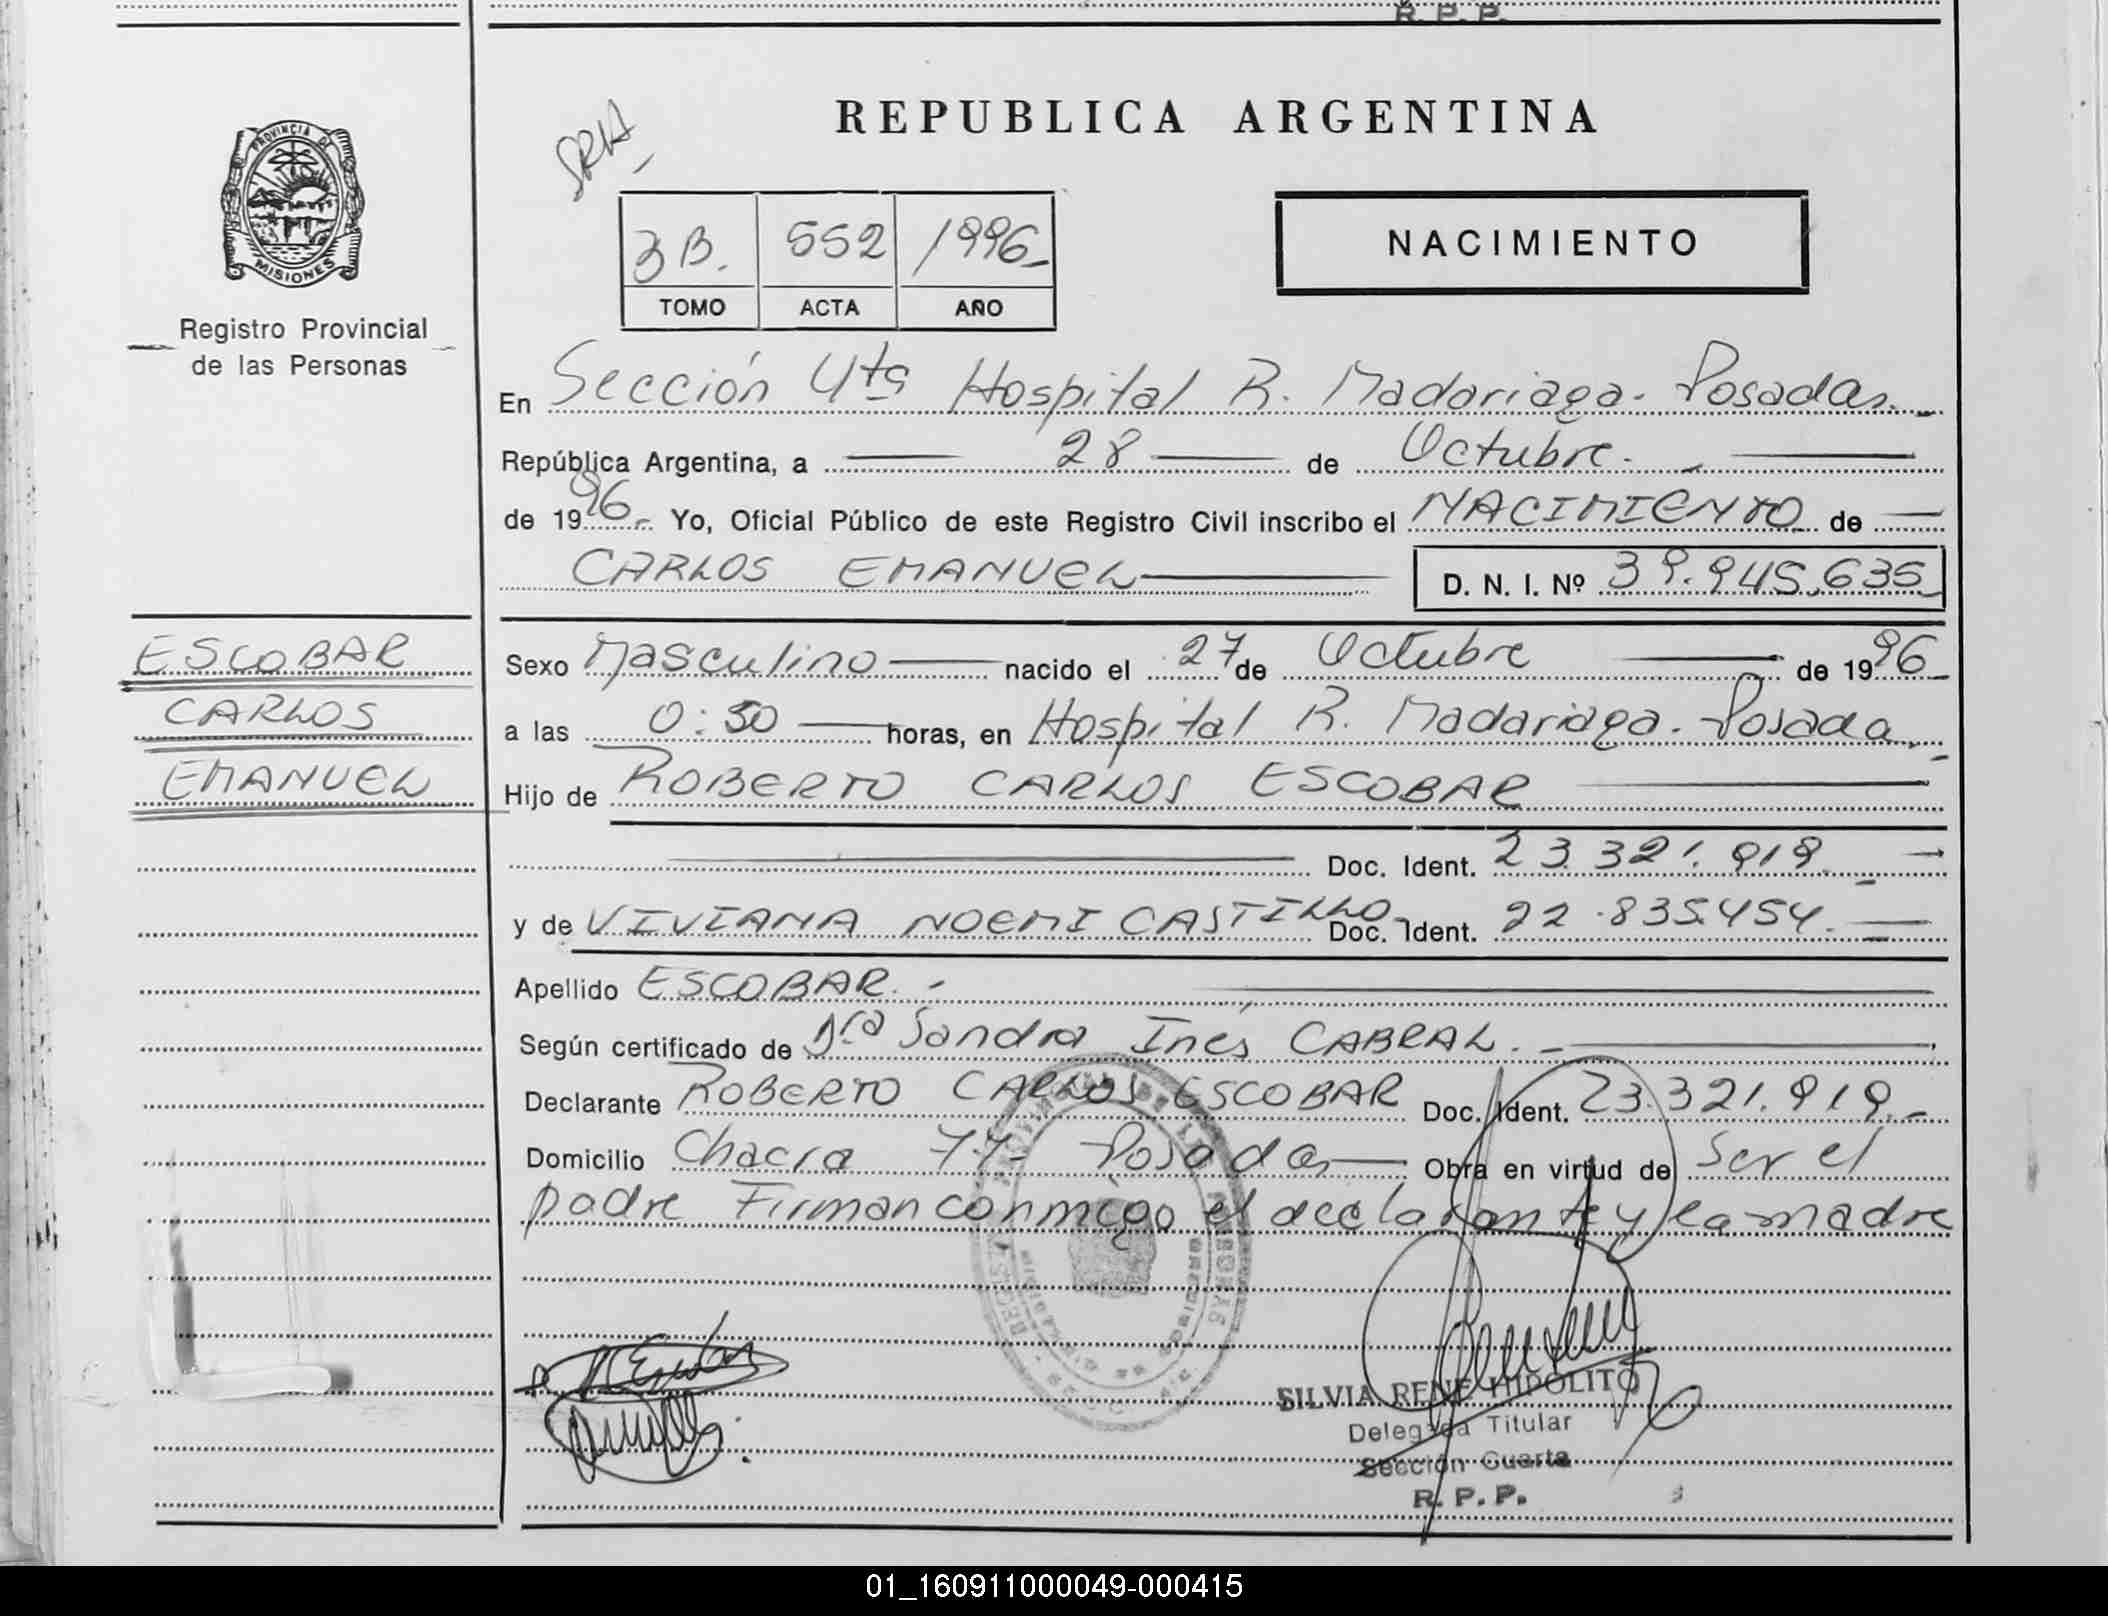 R. P. P.
PROVINCIA DE
MISIONES
Registro Provincial
de las Personas
REPUBLICA ARGENTINA
3B. 552 1996
TOMO ACTA AÑO
NACIMIENTO
En Sección 4ta Hospital R. Madariaga. Posadas.
República Argentina, a 28 de Octubre.
de 1996. Yo, Oficial Público de este Registro Civil inscribo el NACIMIENTO de
CARLOS EMANUEL D. N. I. Nº 39.945.635
ESCOBAR
CARLOS
EMANUEL
Sexo Masculino nacido el 27 de Octubre de 1996
a las 0:30 horas, en Hospital R. Madariaga. Posada
Hijo de ROBERTO CARLOS ESCOBAR
Doc. Ident. 23.321.919.
y de VIVIANA NOEMI CASTILLO Doc. Ident. 22.835.454.
Apellido ESCOBAR.-
Según certificado de Dra Sandra Inés CABRAL.-
Declarante ROBERTO CARLOS ESCOBAR Doc. Ident. 23.321.919.-
Domicilio Chacra 77- Posadas Obra en virtud de ser el
padre Firman conmigo el declarante y la madre
SILVIA RENE HIPOLITO
Delegada Titular
Sección Cuarta
R. P. P.
01_160911000049-000415